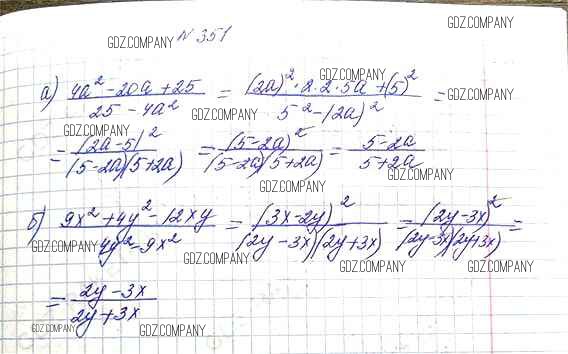 GDZ.COMPANY
GDZ.COMPANY № 351
а) (4a² - 20a + 25)/(25 - 4a²) = ((2a)² · 2·2·5a + (5)²)/(5² - (2a)²) = GDZ.COMPANY
GDZ.COMPANY GDZ.COMPANY
= (2a-5)²/((5-2a)(5+2a)) = (5-2a)²/((5-2a)(5+2a)) = (5-2a)/(5+2a) GDZ.COMPANY
GDZ.COMPANY
б) (9x² + 4y² - 12xy)/(4y² - 9x²) = (3x-2y)²/((2y-3x)(2y+3x)) = (2y-3x)²/((2y-3x)(2y+3x)) =
GDZ.COMPANY GDZ.COMPANY GDZ.COMPANY GDZ.COMPANY
= (2y-3x)/(2y+3x)
GDZ.COMPANY GDZ.COMPANY